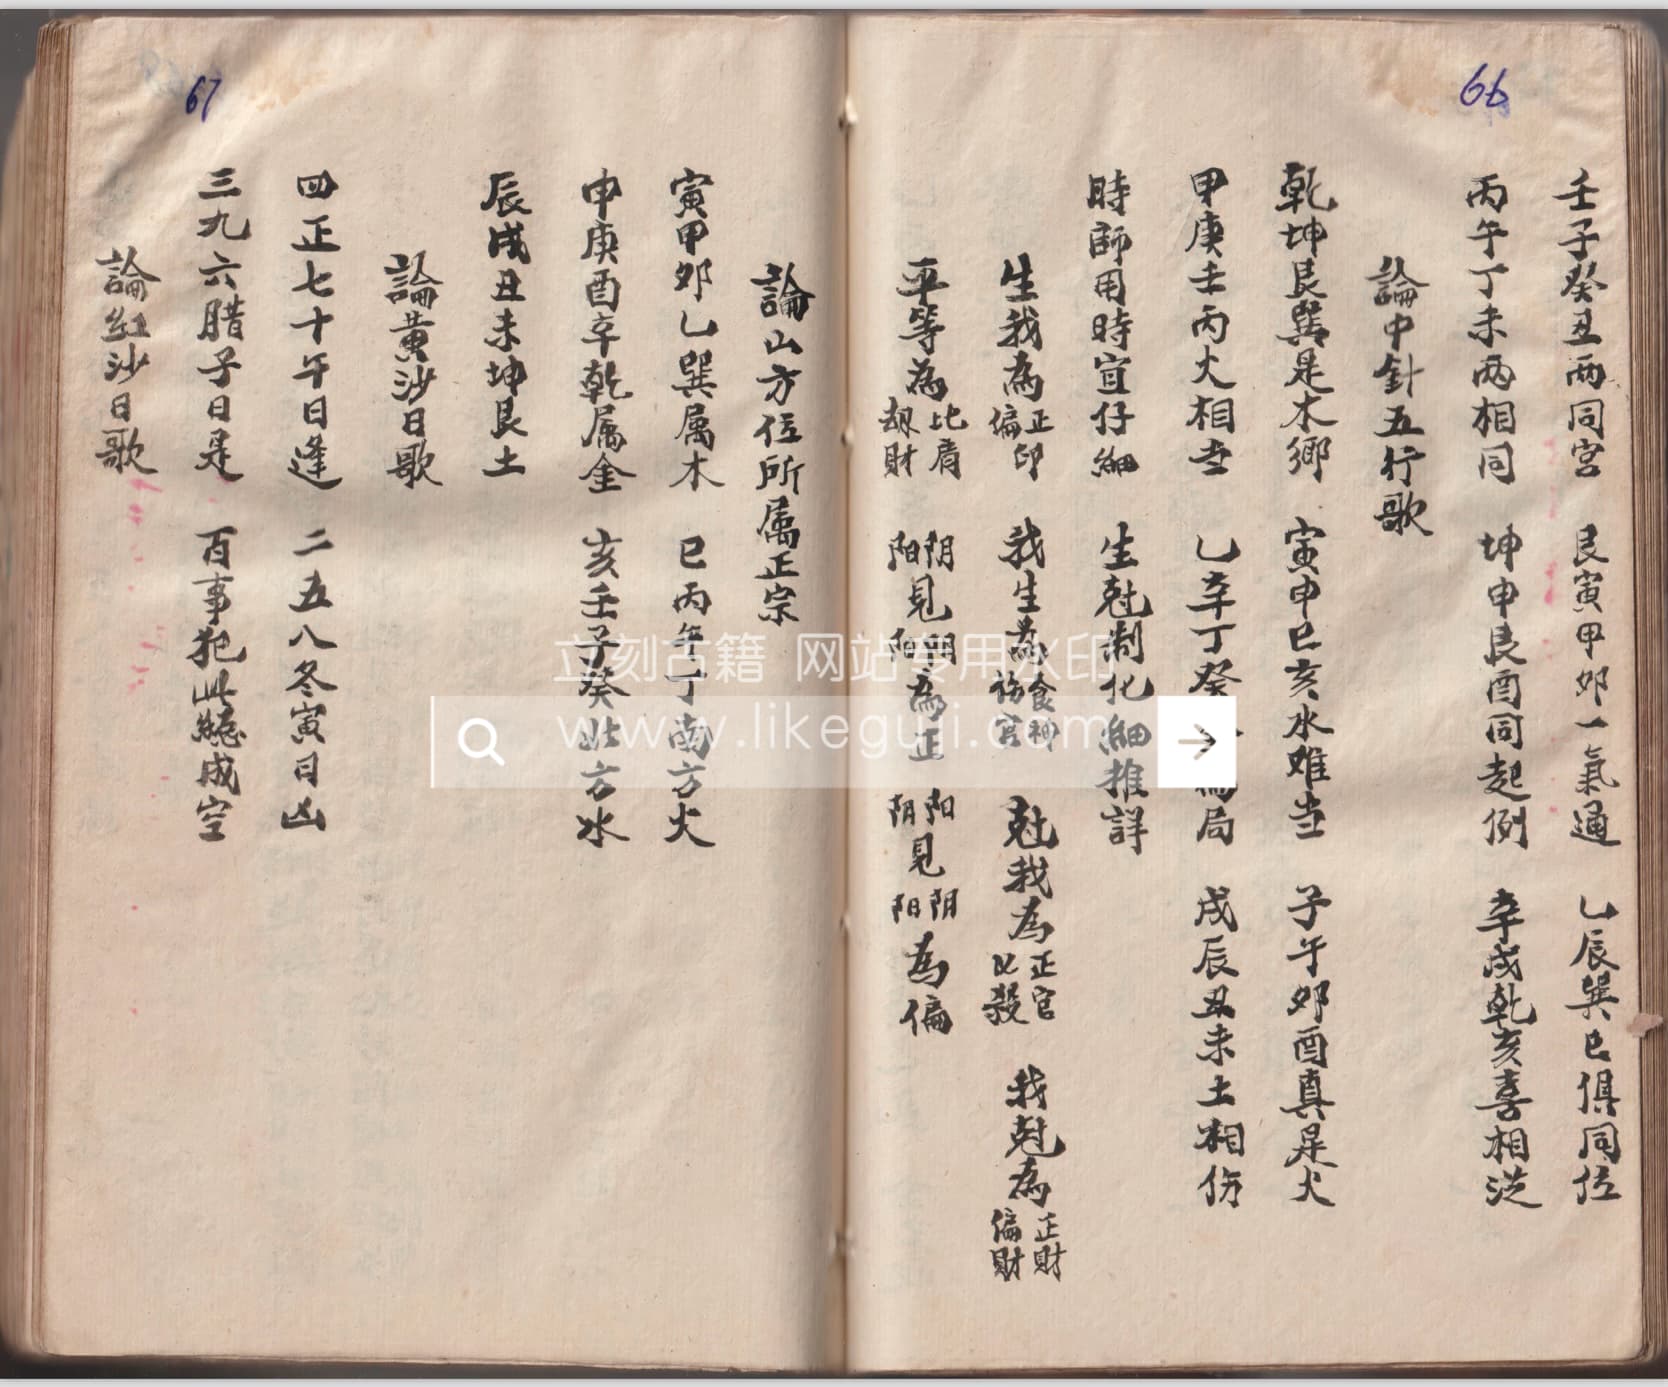 66
壬子癸丑两同宫 艮寅甲卯一氣通 乙辰巽巳俱同位
丙午丁未两相同 坤申艮酉同起例 辛戌乾亥喜相
論中針五行歌
乾坤艮巽是木鄉 寅申巳亥水难当 子午卯酉真是火
甲庚壬丙火相 乙辛丁癸 局 戌辰丑未土相伤
時師用時宜仔細 生尅制化細推詳
生我為正印偏印 我生為食神伤官 尅我為正官七殺 我尅為正財偏財
平等為比肩刼財 阴阳見阴阳為正 阳阴見阴阳為偏
67
論山方位所属正宗
寅甲卯乙巽属木 巳丙午丁南方火
申庚酉辛乾属金 亥壬子癸北方水
辰戌丑未坤艮土
論黄沙日歌
四正七十午日逢 二五八冬寅日凶
三九六腊子日是 百事犯此總成空
論紅沙日歌
立刻古籍 网站专用水印
www.likeguji.com